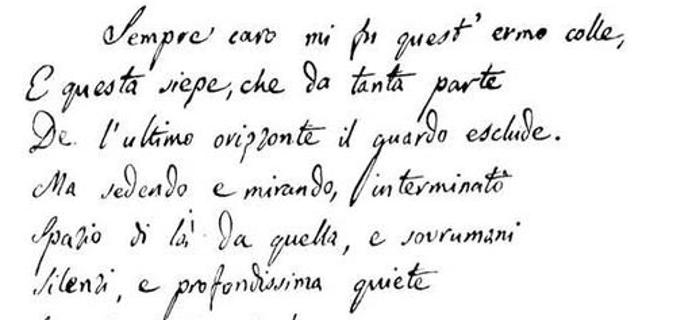 Sempre caro mi fu quest' ermo colle,
E questa siepe, che da tanta parte
De l'ultimo orizzonte il guardo esclude.
Ma sedendo e mirando, interminato
Spazio di là da quella, e sovrumani
Silenzi, e profondissima quiete